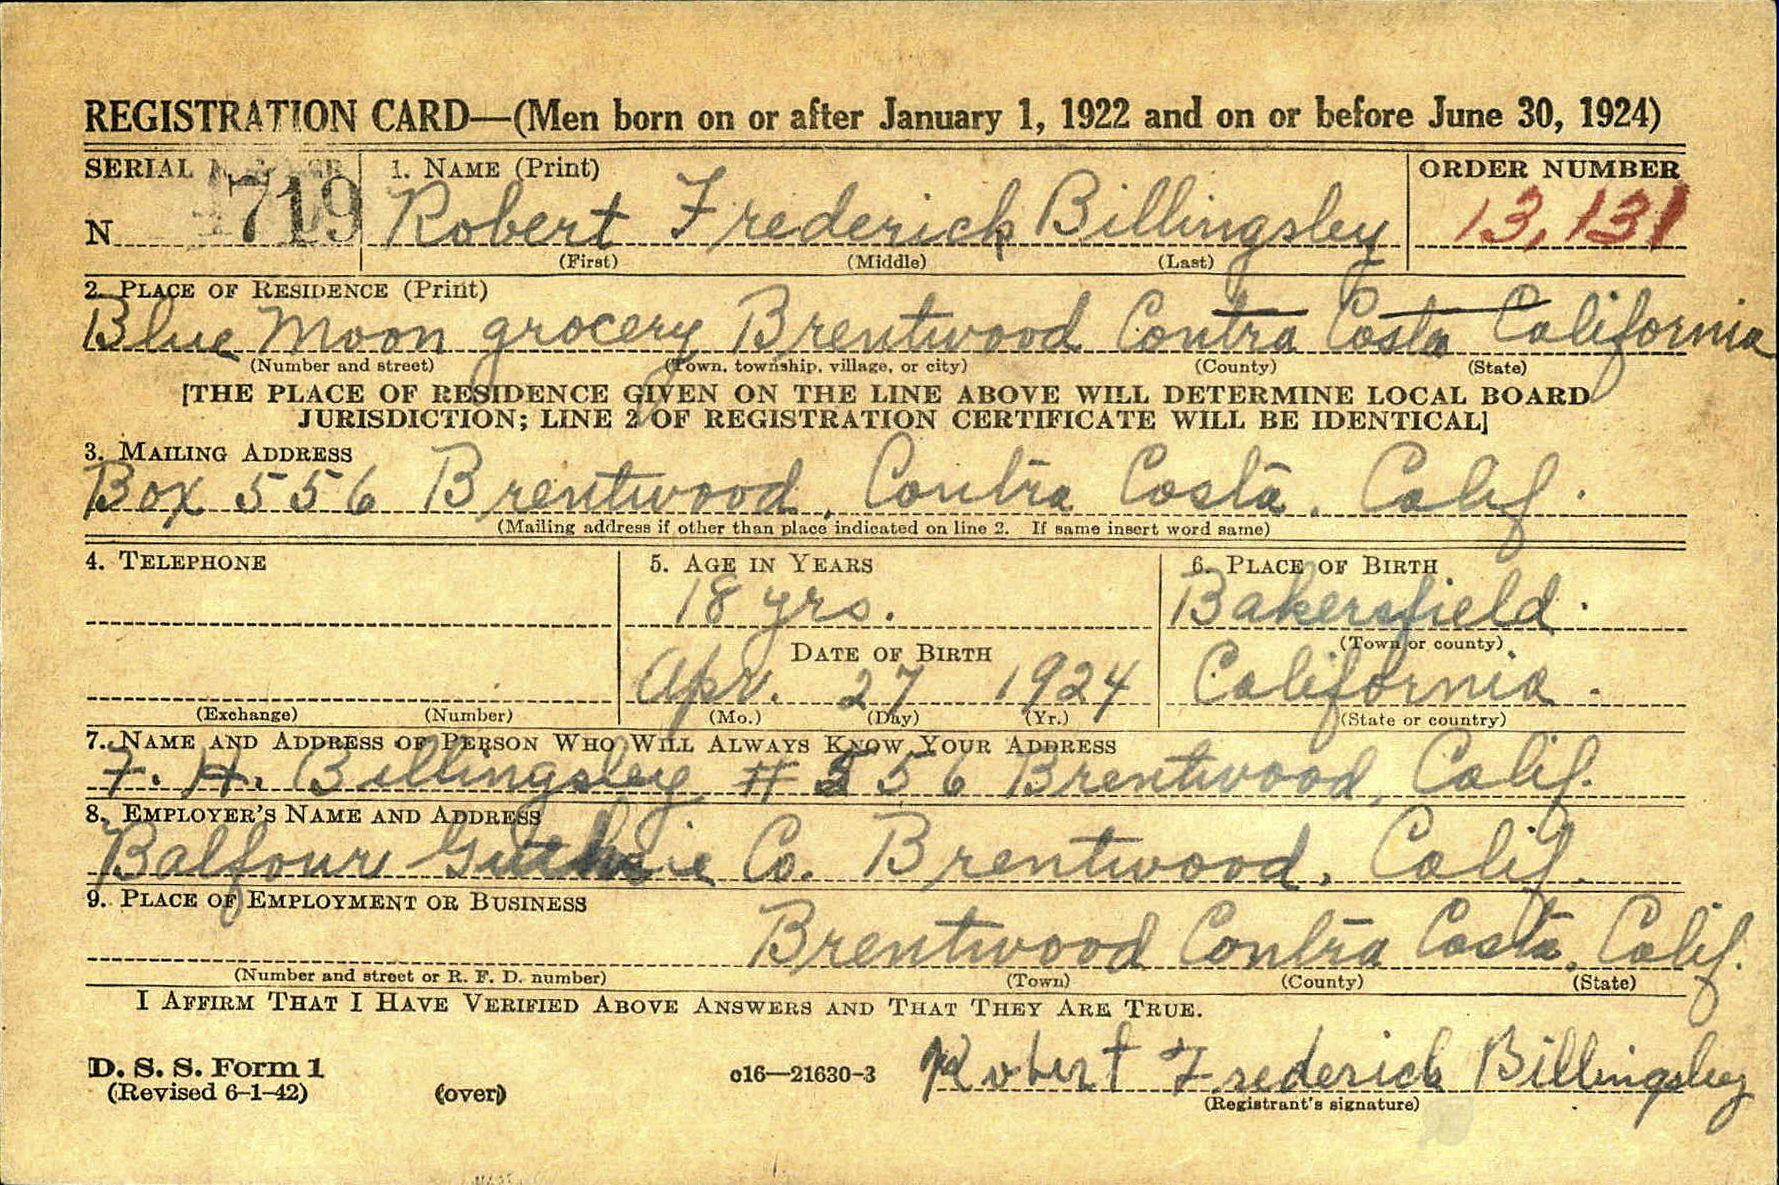 REGISTRATION CARD—(Men born on or after January 1, 1922 and on or before June 30, 1924)
SERIAL 1. NAME (Print) ORDER NUMBER
N 719 Robert Frederick Billingsley 13,131
(First) (Middle) (Last)
2. PLACE OF RESIDENCE (Print)
Blue Moon grocery Brentwood Contra Costa California
(Number and street) (Town, township, village, or city) (County) (State)
[THE PLACE OF RESIDENCE GIVEN ON THE LINE ABOVE WILL DETERMINE LOCAL BOARD
JURISDICTION; LINE 2 OF REGISTRATION CERTIFICATE WILL BE IDENTICAL]
3. MAILING ADDRESS
Box 556 Brentwood, Contra Costa, Calif.
(Mailing address if other than place indicated on line 2. If same insert word same)
4. TELEPHONE 5. AGE IN YEARS 6. PLACE OF BIRTH
18 yrs. Bakersfield.
DATE OF BIRTH (Town or county)
Apr. 27 1924 California.
(Exchange) (Number) (Mo.) (Day) (Yr.) (State or country)
7. NAME AND ADDRESS OF PERSON WHO WILL ALWAYS KNOW YOUR ADDRESS
F. H. Billingsley # 556 Brentwood, Calif.
8. EMPLOYER'S NAME AND ADDRESS
Balfour Guthrie Co. Brentwood, Calif.
9. PLACE OF EMPLOYMENT OR BUSINESS
Brentwood Contra Costa, Calif.
(Number and street or R. F. D. number) (Town) (County) (State)
I AFFIRM THAT I HAVE VERIFIED ABOVE ANSWERS AND THAT THEY ARE TRUE.
D. S. S. Form 1
(Revised 6-1-42) (over) c16—21630-3 Robert Frederick Billingsley
(Registrant's signature)